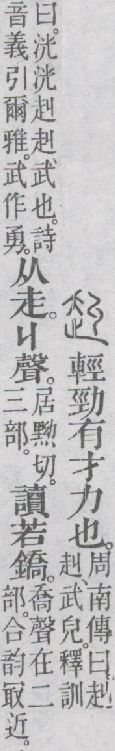 輕勁有才力也。
周南傳曰赳
赳、武皃。釋訓
曰。洸洸赳赳、武也。詩
音義引爾雅。武作勇。
从走。丩聲。
居黝切。
三部。
讀若鐈。
喬聲在二
部。合韵取近。